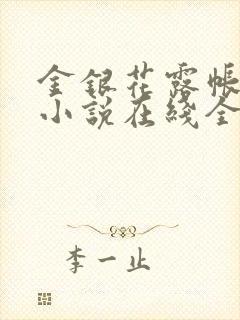 金银花露帐
小说在线全
李一止